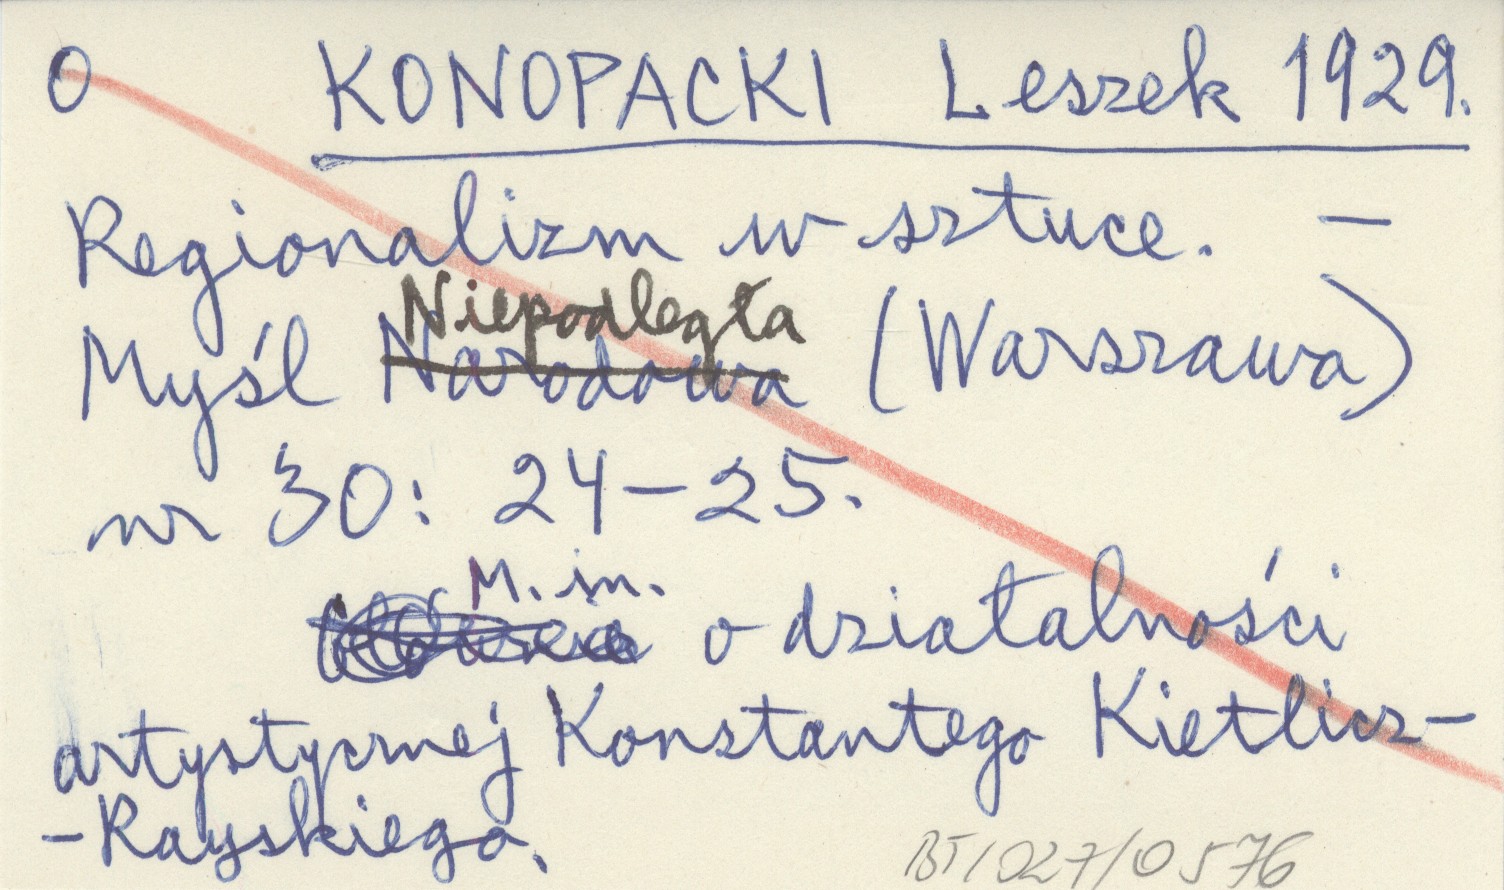 O KONOPACKI Leszek 1929.
Regionalizm w sztuce. —
Niepodległa
Myśl Narodowa (Warszawa)
nr 30: 24-25.
M. in.
o działalności
artystycznej Konstantego Kietlicz-
-Rayskiego.
BT/027/0576